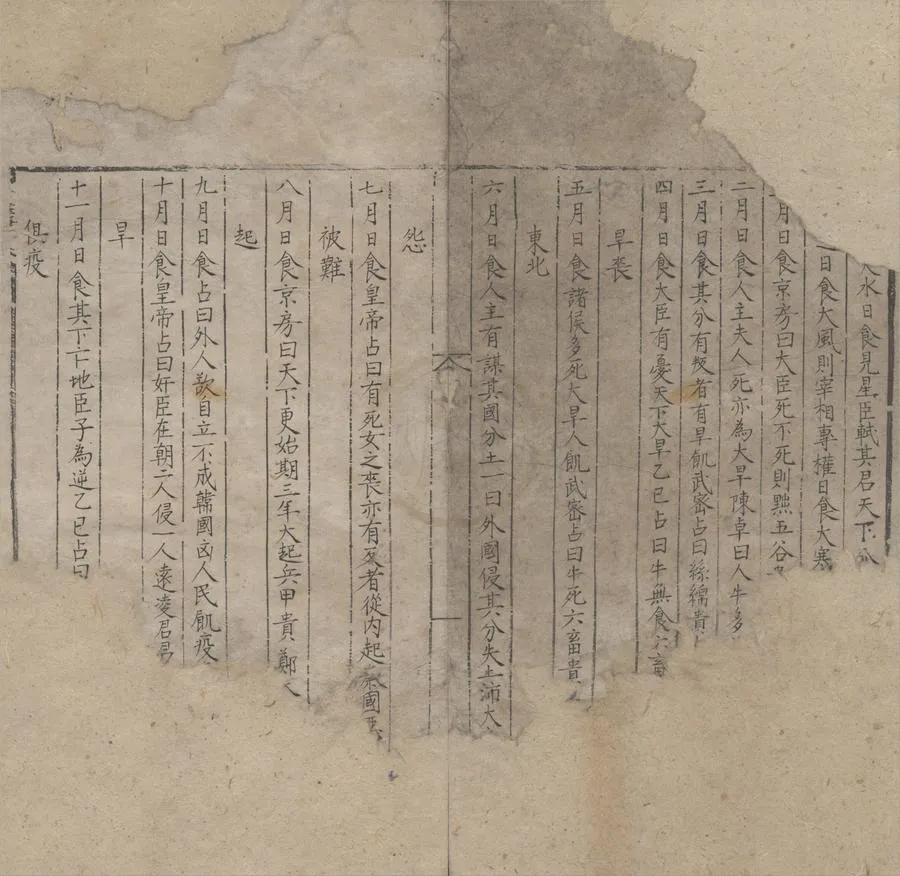 水日食見星臣弒其君天下分
日食大風則宰相專權日食大寒
月日食京房曰大臣死不死則黜五谷
二月日食人主夫人死亦為大旱陳卓曰人牛多
三月日食其分有叛者有旱飢武密占曰絲綿貴
四月日食大臣有憂天下大旱乙巳占曰牛無食六畜
旱喪
五月日食諸侯多死大旱人飢武密占曰牛死六畜貴
東北
六月日食人主有謀其國分土一曰外國侵其分失土沛大
怨
七月日食皇帝占曰有死女之喪亦有叛者從内起秦國惡
被難
八月日食京房曰天下更始期三年大起兵甲貴鄭
起
九月日食占曰外人欲自立不成韓國凶人民飢疫
十月日食皇帝占曰奸臣在朝二人侵一人遠凌君
旱
十一月日食其下亡地臣子為逆乙巳占曰
俱疫